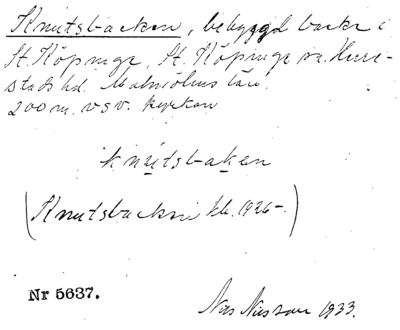 Knutsbacken, bebyggd backe i
St. Köpinge, St. Köpinge sn. Herre-
stads hd. Malmöhus län.
200 m. v.s.v. kyrkan
knutsbaken
(Knutsbacken kb. 1926-.)
Nr 5637.
Nils Nilsson 1933.